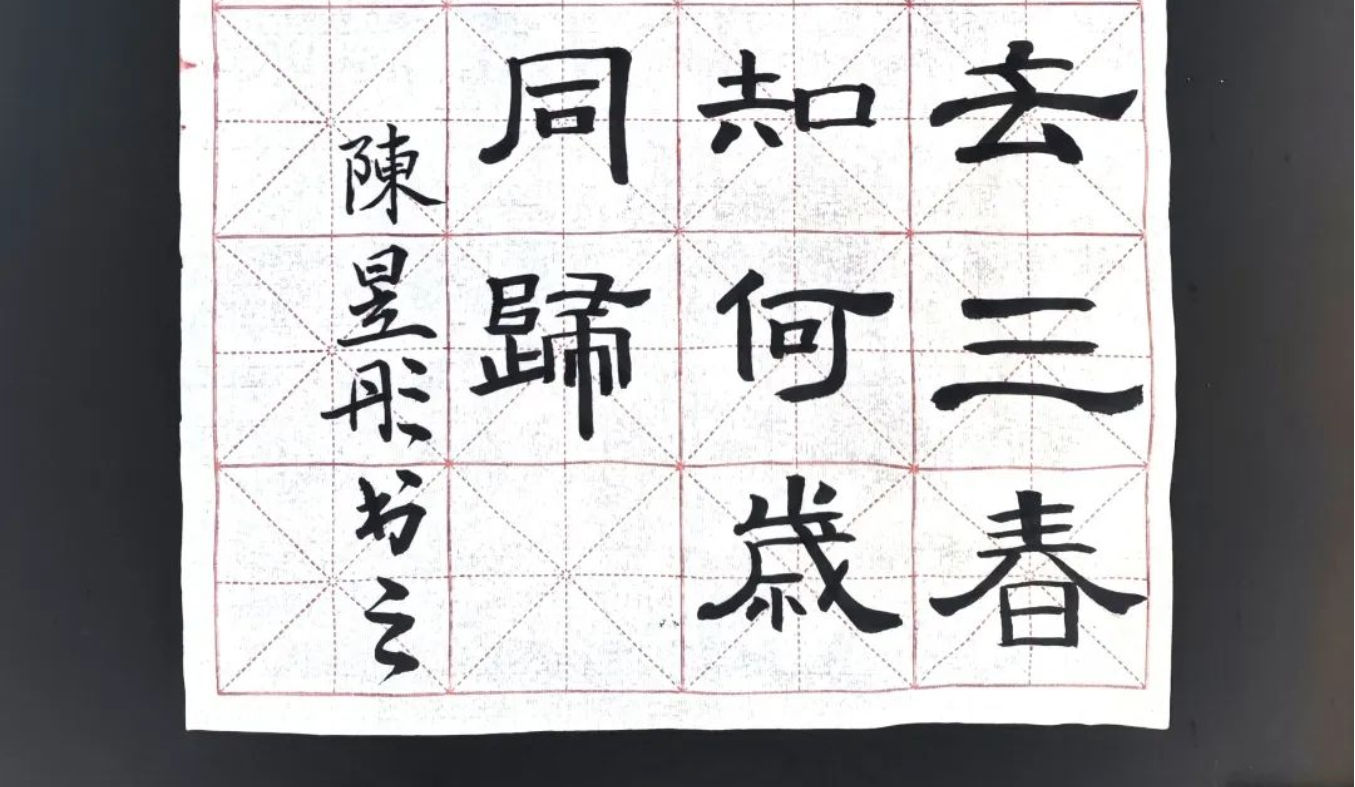 去三春
知何歲
同歸
陳昱彤书之